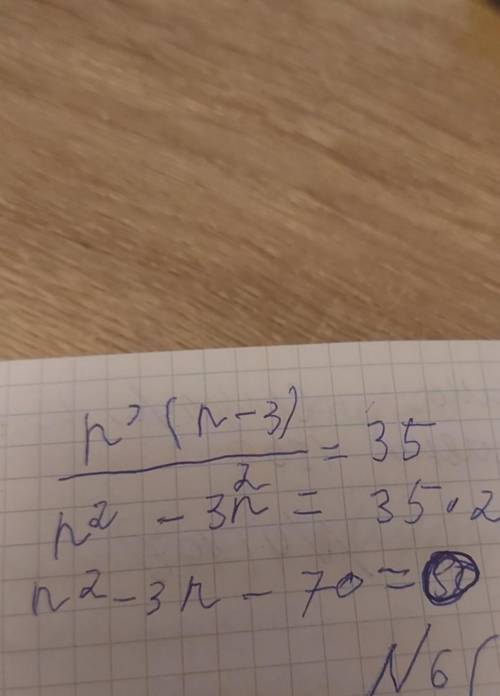 n · (n - 3) / 2 = 35
n² - 3n = 35 · 2
n² - 3n - 70 =
N 6